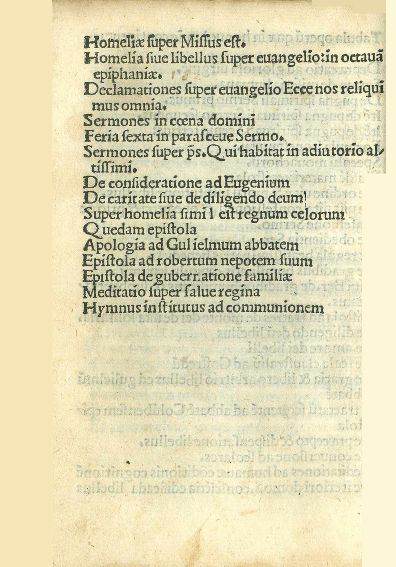 Homeliæ ſuper Miſſus eſt.
Homelia ſiue libellus ſuper euangelio: in octauā
epiphaniæ.
Declamationes ſuper euangelio Ecce nos reliqui
mus omnia.
Sermones in cœna domini
Feria ſexta in paraſceue Sermo.
Sermones ſuper p̄s. Qui habitat in adiutorio al-
tiſſimi.
De conſideratione ad Eugenium
De caritate ſiue de diligendo deum
Super homelia ſimil eſt regnum celorum
Quedam epiſtola
Apologia ad Gulielmum abbatem
Epiſtola ad robertum nepotem ſuum
Epiſtola de gubernatione familiæ
Meditatio ſuper ſalue regina
Hymnus inſtitutus ad communionem